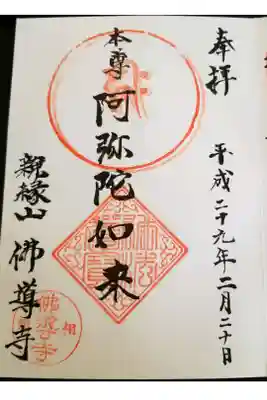 奉拝
平成二十九年二月二十日
本尊
阿弥陀如来
親縁山
佛導寺
佛導寺